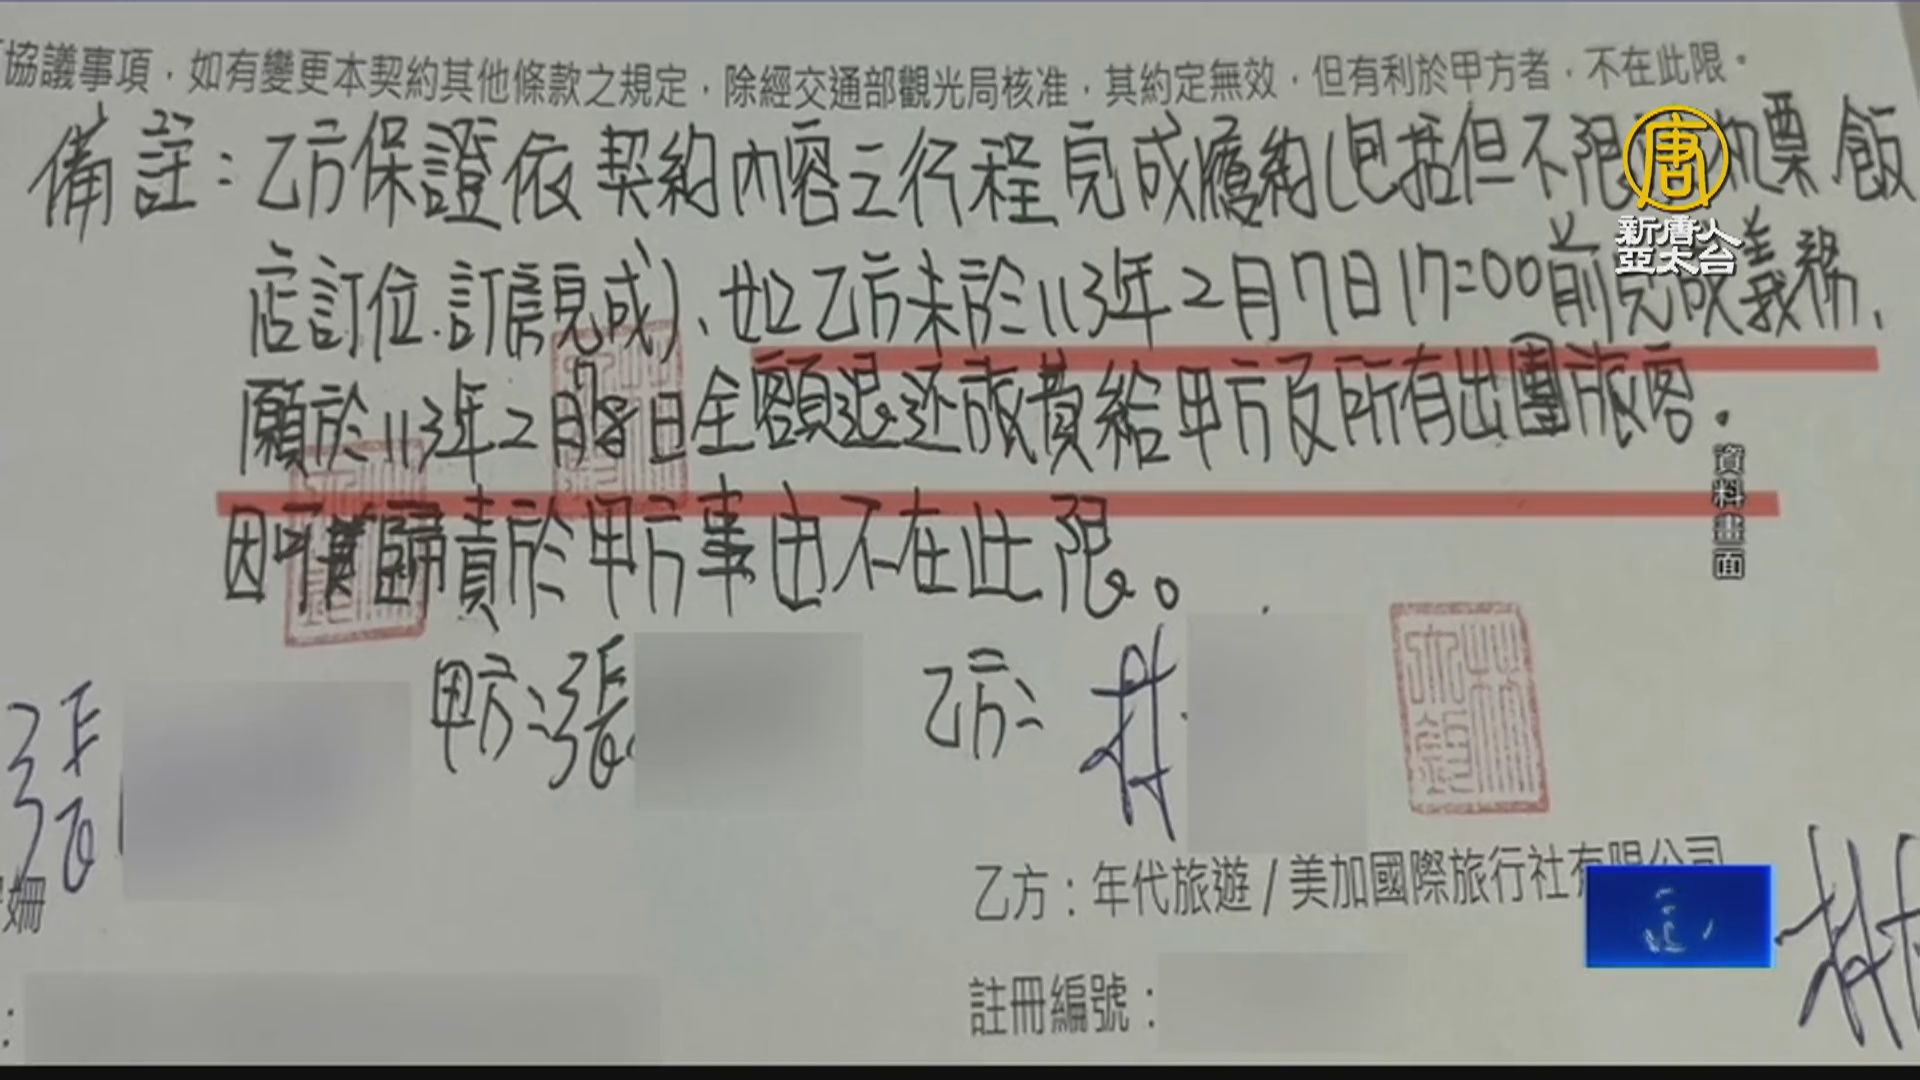 協議事項，如有變更本契約其他條款之規定，除經交通部觀光局核准，其約定無效，但有利於甲方者，不在此限。
備註：乙方保證依契約內容之行程完成履約(包括但不限 機票飯
店訂位.訂房完成)、如乙方未於113年2月7日17:00前完成義務，
願於113年2月8日全額退还旅費給甲方及所有出團旅客。
因可歸責於甲方事由不在此限。
新唐人
亞太台
唐
資料畫面
張
甲方：張
乙方：林
姍
乙方：年代旅遊/美加國際旅行社有限公司
註冊編號：
林